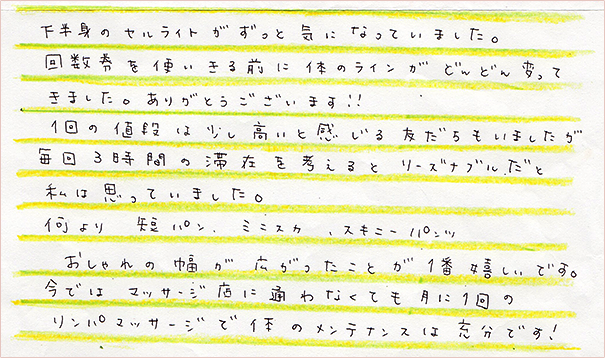 下半身のセルライトがずっと気になっていました。
回数券を使いきる前に体のラインがどんどん変って
きました。ありがとうございます!!
1回の値段は少し高いと感じる友だちもいましたが
毎回3時間の滞在を考えるとリーズナブルだと
私は思っていました。
何より短パン、ミニスカ、スキニーパンツ
おしゃれの幅が広がったことが1番嬉しいです。
今ではマッサージ店に通わなくても月に1回の
リンパマッサージで体のメンテナンスは充分です!